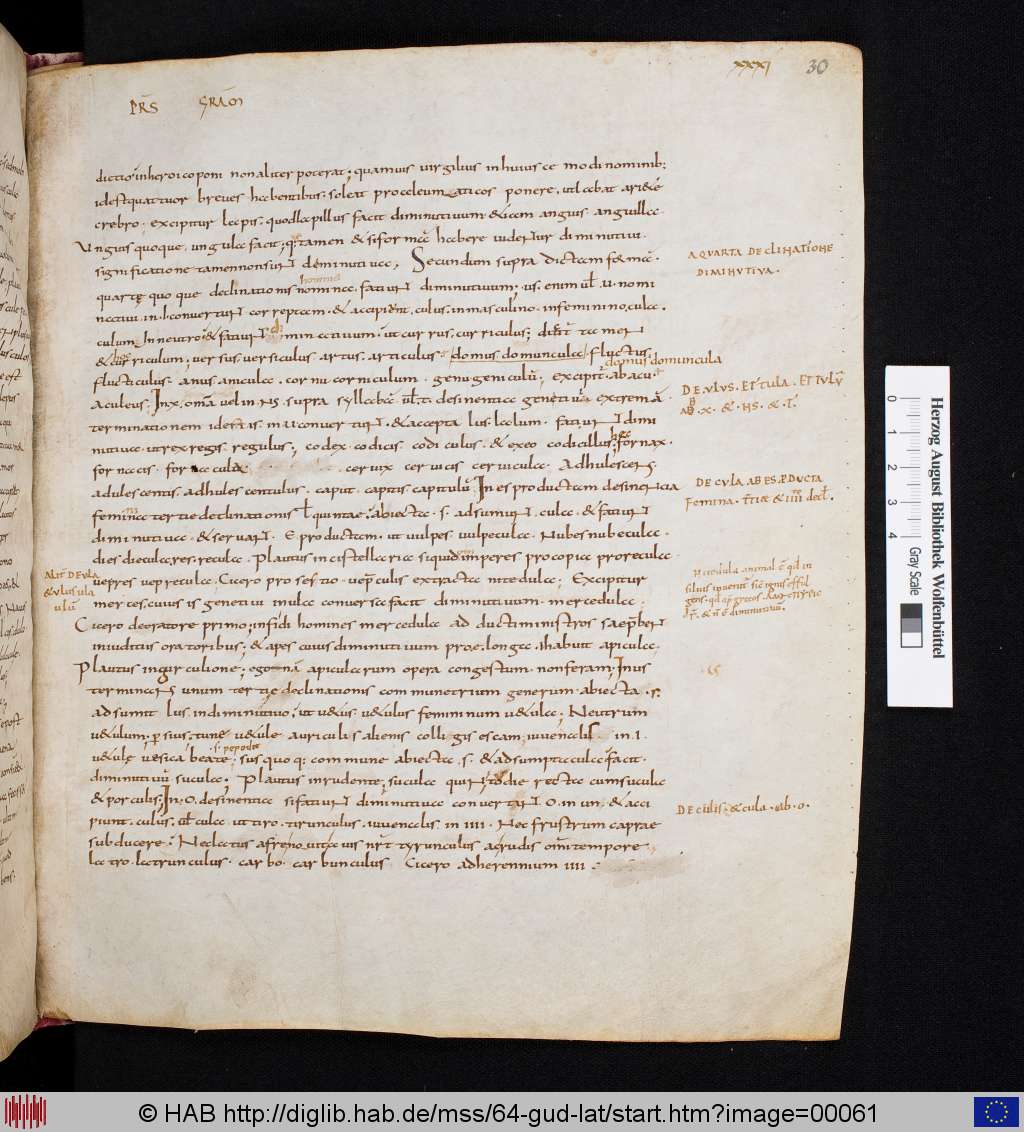 xxxi 30
PRS GRAM
dictio in heroico poni non aliter poterat; quamuis uirgilius in huiusce modi nominib;
idest quattuor breues habentibus. soleat proceleumaticos ponere. ut labat ariete
crebro. excipitur lapis. quod lapillus facit diminutiuum. & item anguis anguilla.
Vnguis quoque. ungula facit; q; tamen & si formā habere uidentur diminutiui.
significatione tamen non sunt deminutiua; Secundum supra dictam formā.
quartę quoque declinationis nomina. faciunt diminutiuum; us. enim ul u. nomi
natiui. in. i. conuertunt correptam. & accipiunt. culus. in masculino. in feminino. cula.
culum. In neutro. & faciunt diminutiuum. ut currus. curriculus;
& curriculum; uersus. uersiculus artus. articulus. domus. domuncula. fluctus.
domus domuncula
flucticulus. anus anicula. cornu corniculum. genu geniculū; excipit abacus
aculeus; In x. omā uel in ns. supra syllaba ul t. desinentia genetiui extremā
terminationem idest is. in u conuertunt. & accepta lus. lalum. faciunt dimi
nutiua. ut rex regis regulus; codex. codicis codiculus. & exeo codicillus. fornax.
fornacis. fornacula ceruix ceruicis ceruicula. Adhulescens.
adulescentis. adhulescentulus. caput. capitis capitulū. In es productam desinentia
feminina tertie declinationis ul quintae. abiecta. s. adsumunt. culę. & faciunt
diminutiua. & seruant. E. productam. ut uulpes uulpecula. Nubes nubecula.
dies diecula. res. recula. Plautus in cistellaria siquid imperes pro copia pro recula.
uepres uepretcula. Cicero pro sestio. uepculis extracta nitedula; Excipitur
merces. cuius is genetiui in ula conuersa facit diminutiuum. mercedula.
Cicero de oratore primo; infidi homines mercedula adducti ministros sae pberi
inuditus oratoribus; & apes cuius diminutiuum prae. longa. i habuit apicula.
Plautus in gurculione; ego nam apicularum opera congestum non feram; In us
terminans unum tertię declinationis commune trium generum. abiecta. s.
adsumit lus. in diminutiuo; ut uetus. uetulus femininum uetula; Neutrum
uetulum; p sius. tune uetule auriculis alienis colligis escam; iuuenalis in. i.
s. pepodit
uetule uesica beate; sus quoq; commune abiecta. s. & adsumpta cula facit.
diminutiuū sucula; Plautus in rudente; sucula recta cum sucula
& porculis; In. o. desinentia si faciunt diminutiua conuertunt. o. in un; & acci
piunt. culus. ul cula ut tiro. tirunculus. iuuenalis in iiii. Nec frustrum caprae
subducere; Neclectus afreno uitęa uis nrt tyrunculus ac rudis omi tempore.
latro. latrunculus. carbo. carbunculus. Cicero ad herennium iiii
A QVARTA DECLINATIONE
DIMINVTIVA.
DE VLVS. ET TVLA. ET TVLV
AB. X. & NS. & T.
DE CVLA AB ES PDVCTA
Femina. trię & iiii decl.
nitedula animal ē qd in
siluis inuenit
DE culis. & cula. ab. o.
ALIT DE VLA
& ulus ula
ulū
0 1 2 3 4
Gray Scale
Herzog August Bibliothek Wolfenbüttel
© HAB http://diglib.hab.de/mss/64-gud-lat/start.htm?image=00061